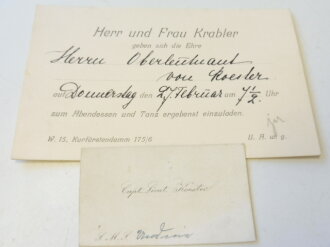 Herr und Frau Krabler
geben sich die Ehre
Herrn Oberleutnant
von Koester
auf Donnerstag den 27 Februar um 7½ Uhr
zum Abendessen und Tanz ergebenst einzuladen.
W. 15, Kurfürstendamm 175/6 U. A. w. g.
Capt. Lieut. Koester
S. M. S.